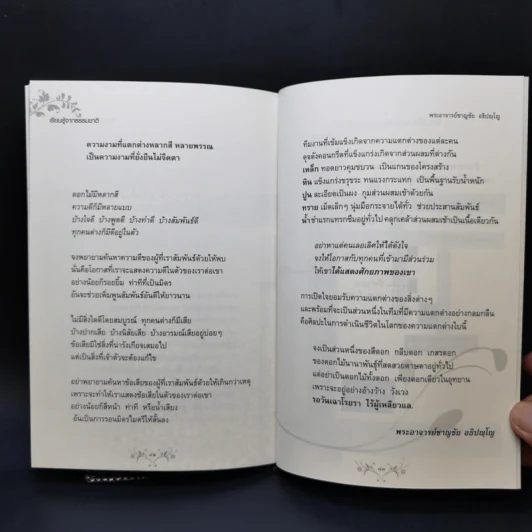 เรียนรู้จากธรรมชาติ
ความงามที่แตกต่างหลากสี หลายพรรณ
เป็นความงามที่ยั่งยืนไม่จืดตา
ดอกไม้มีหลากสี
ความดีก็มีหลายแบบ
บ้างใจดี บ้างพูดดี บ้างทำดี บ้างสัมพันธ์ดี
ทุกคนต่างก็มีดีอยู่ในตัว
จงพยายามค้นหาความดีของผู้ที่เราสัมพันธ์ด้วยให้พบ
นั่นคือโอกาสที่เราจะแสดงความดีในตัวของเราต่อเขา
อย่างน้อยก็รอยยิ้ม ท่าทีที่เป็นมิตร
อันจะช่วยเพิ่มพูนสัมพันธ์อันดีให้ยาวนาน
ไม่มีสิ่งใดดีโดยสมบูรณ์ ทุกคนต่างก็มีเสีย
บ้างปากเสีย บ้างนิสัยเสีย บ้างอารมณ์เสียอยู่บ่อยๆ
ข้อเสียมิใช่สิ่งที่น่ารังเกียจเสมอไป
แต่เป็นสิ่งที่เจ้าตัวจะต้องแก้ไข
อย่าพยายามค้นหาข้อเสียของผู้ที่เราสัมพันธ์ด้วยให้เกินกว่าเหตุ
เพราะจะทำให้เราแสดงข้อเสียในตัวของเราต่อเขา
อย่างน้อยก็สีหน้า ท่าที หรือน้ำเสียง
อันเป็นการรอนมิตรไมตรีให้สั้นลง
พระอาจารย์ชาญชัย อธิปญฺโญ
ทีมงานที่เข้มแข็งเกิดจากความแตกต่างของแต่ละคน
ดุจดังคอนกรีตที่แข็งแกร่งเกิดจากส่วนผสมที่ต่างกัน
เหล็ก ทอดยาวคุมขบวน เป็นแกนของโครงสร้าง
หิน แข็งแกร่งขรุขระ ทนแรงกระแทก เป็นพื้นฐานรับน้ำหนัก
ปูน ละเอียดเป็นผง กุมส่วนผสมเข้าด้วยกัน
ทราย เม็ดเล็กๆ นุ่มมือกระจายได้ทั่ว ช่วยประสานสัมพันธ์
น้ำซ่าแรกแทรกซึมอยู่ทั่วไป คลุกเคล้าส่วนผสมเข้าเป็นเนื้อเดียวกัน
อย่าหาแต่คนเลอเลิศให้ได้ดังใจ
จงให้โอกาสกับทุกคนที่เข้ามามีส่วนร่วม
ให้เขาได้แสดงศักยภาพของเขา
การเปิดใจยอมรับความแตกต่างของสิ่งต่างๆ
และพร้อมที่จะเป็นส่วนหนึ่งในทีมที่มีความแตกต่างอย่างกลมกลืน
คือศิลปะในการดำเนินชีวิตในโลกของความแตกต่างใบนี้
จงเป็นส่วนหนึ่งของสีดอก กลีบดอก เกสรดอก
ของดอกไม้นานาพันธุ์ที่สดสวยดาษดาอยู่ทั่วไป
แต่อย่าเป็นดอกไม้ทั้งดอก เพียงดอกเดียวในอุทยาน
เพราะจะอยู่อย่างอ้างว้าง วังเวง
รอวันเฉาโรยรา ไร้ผู้เหลียวแล.
พระอาจารย์ชาญชัย อธิปญฺโญ